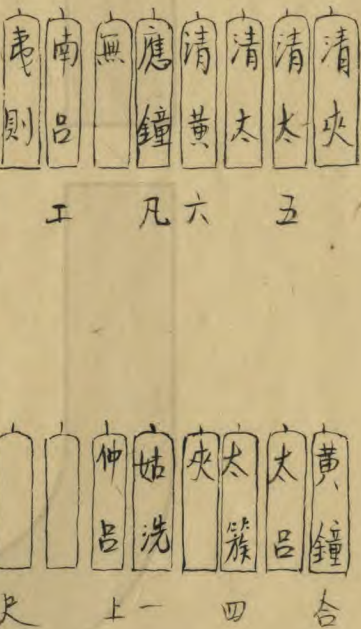 清夾
清太
清太
清黃
應鐘
無
南呂
夷則
五
六
凡
工
黃鐘
太呂
太簇
夾
姑洗
仲呂
合
四
一
上
尺